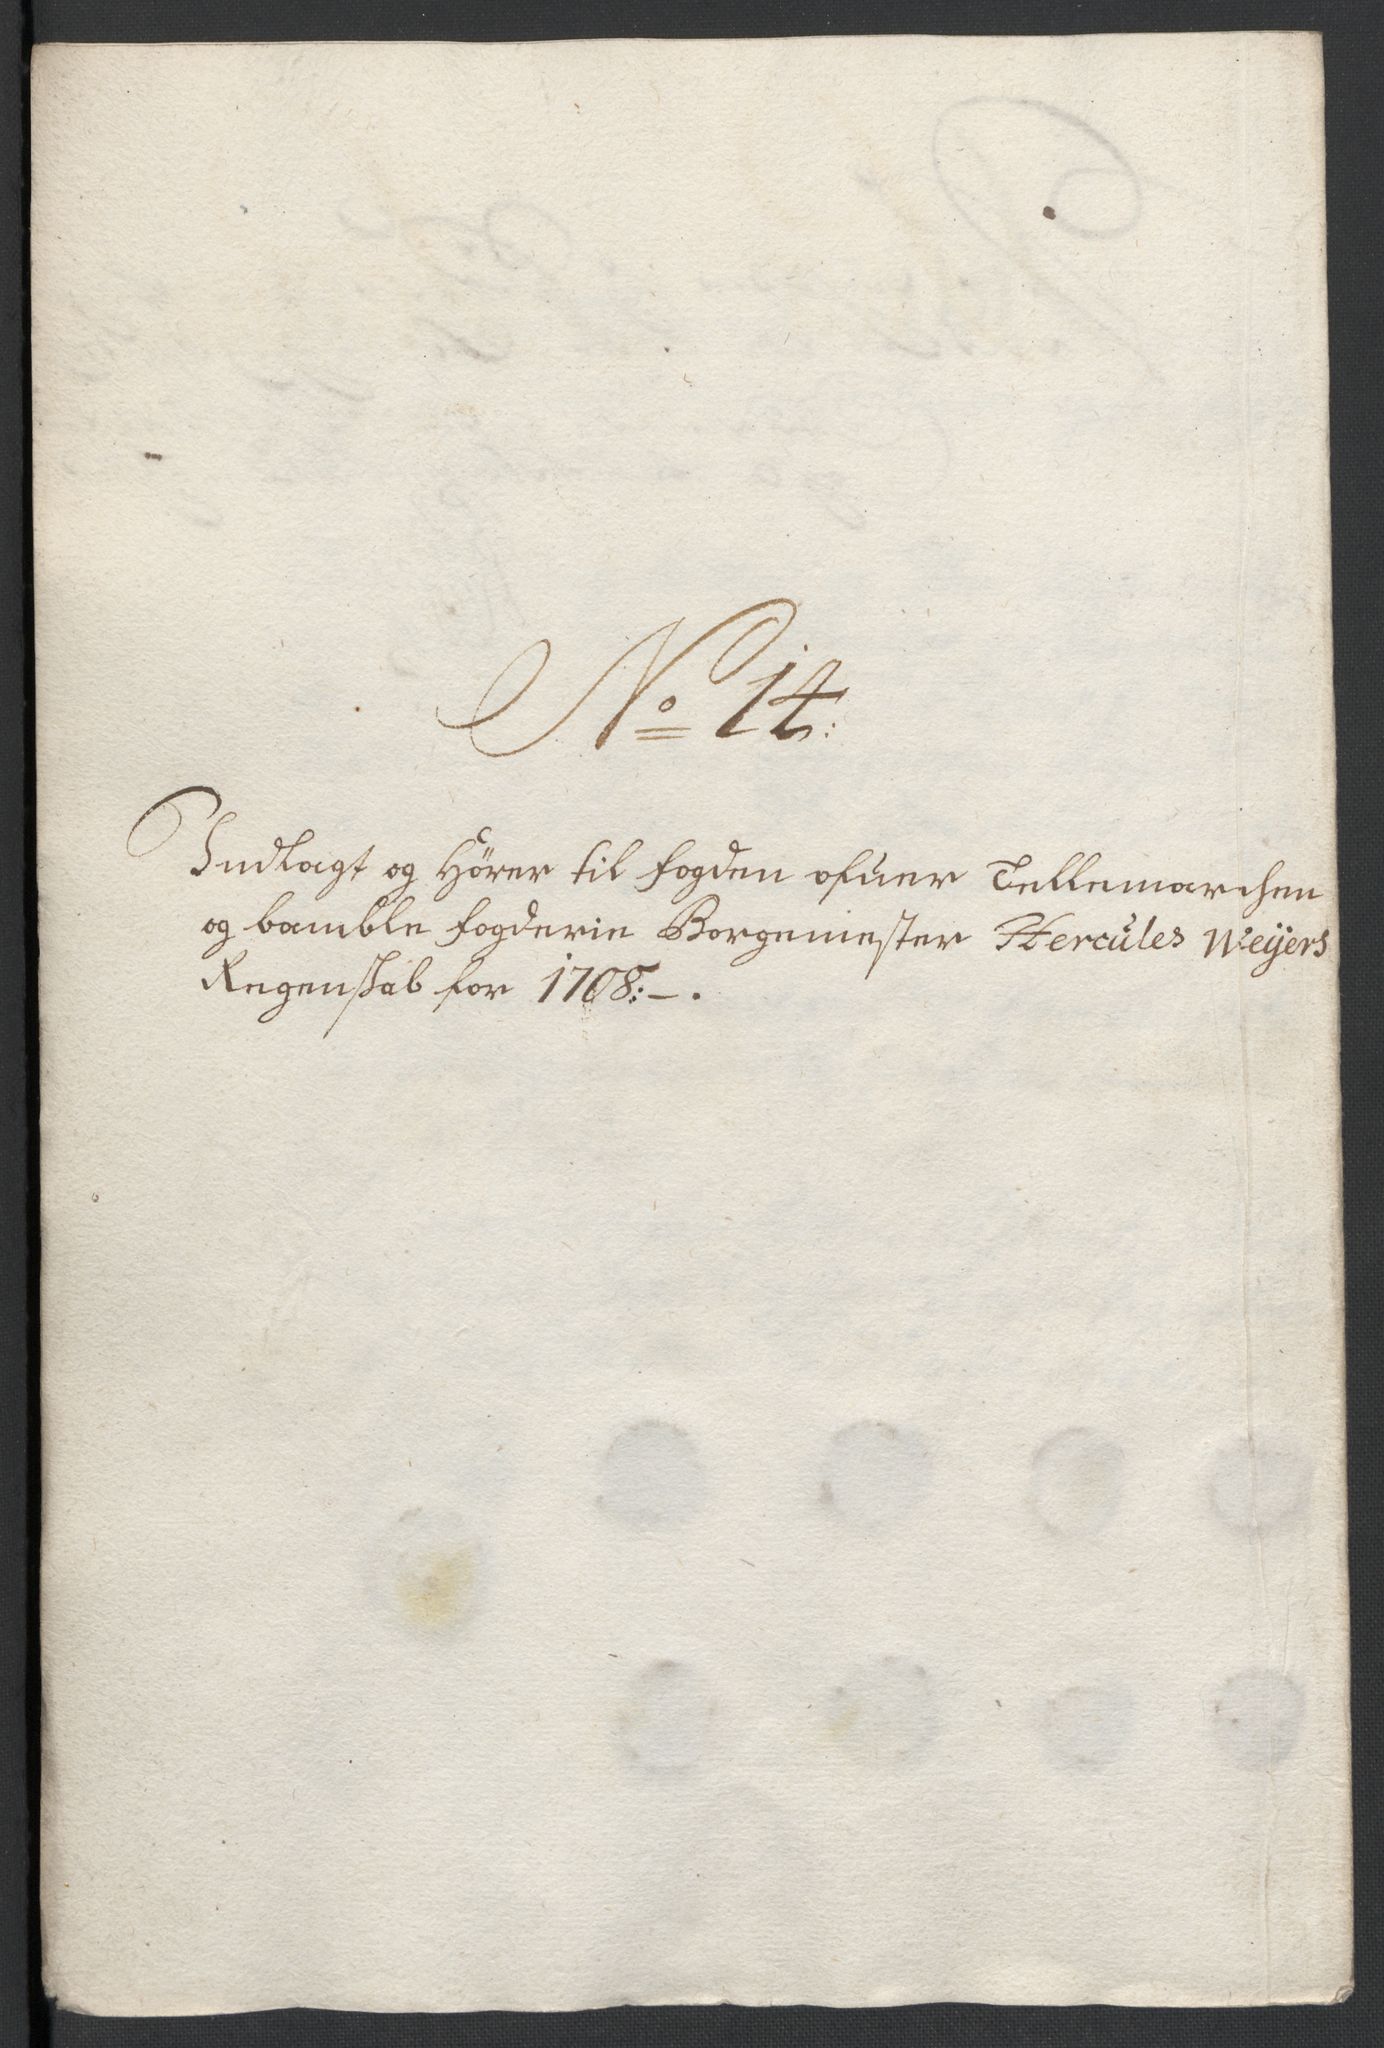 No 14:
Indlagt og Hörer til fogden ofuer Tellemarchen
og bamble fogderie Borgemester Hercules Weyers
Regenskab for 1708:-.